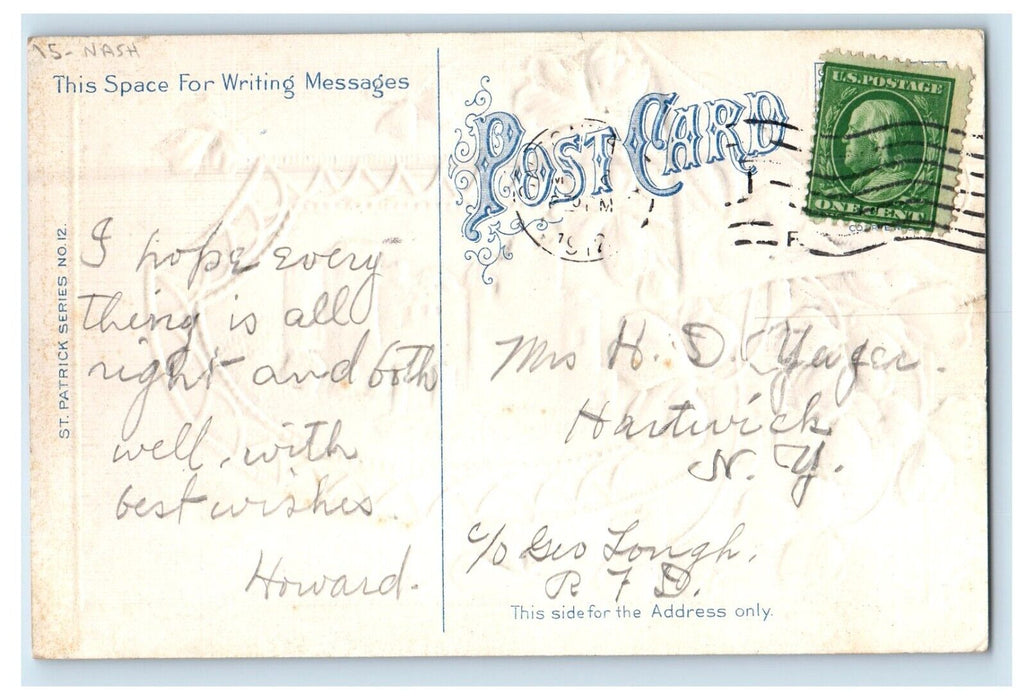 15- NASH
This Space For Writing Messages
ST. PATRICK SERIES NO. 12.
I hope every
thing is all
right and both
well, with
best wishes.
Howard.
POST CARD
U.S. POSTAGE
ONE CENT
Mrs H. D. Yager.
Hartwick
N. Y.
c/o Geo Lough.
R F D.
This side for the Address only.